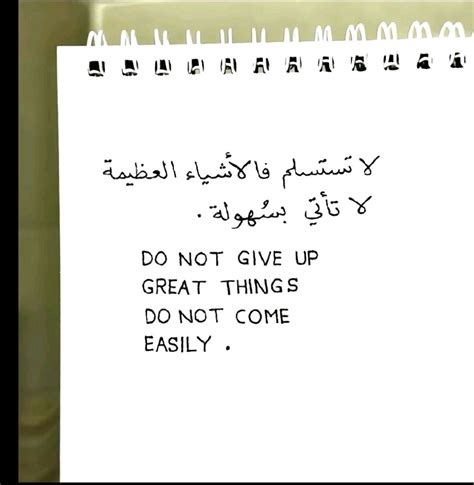 لا تستسلم فالأشياء العظيمة
لا تأتي بسُهولة .
DO NOT GIVE UP
GREAT THINGS
DO NOT COME
EASILY .